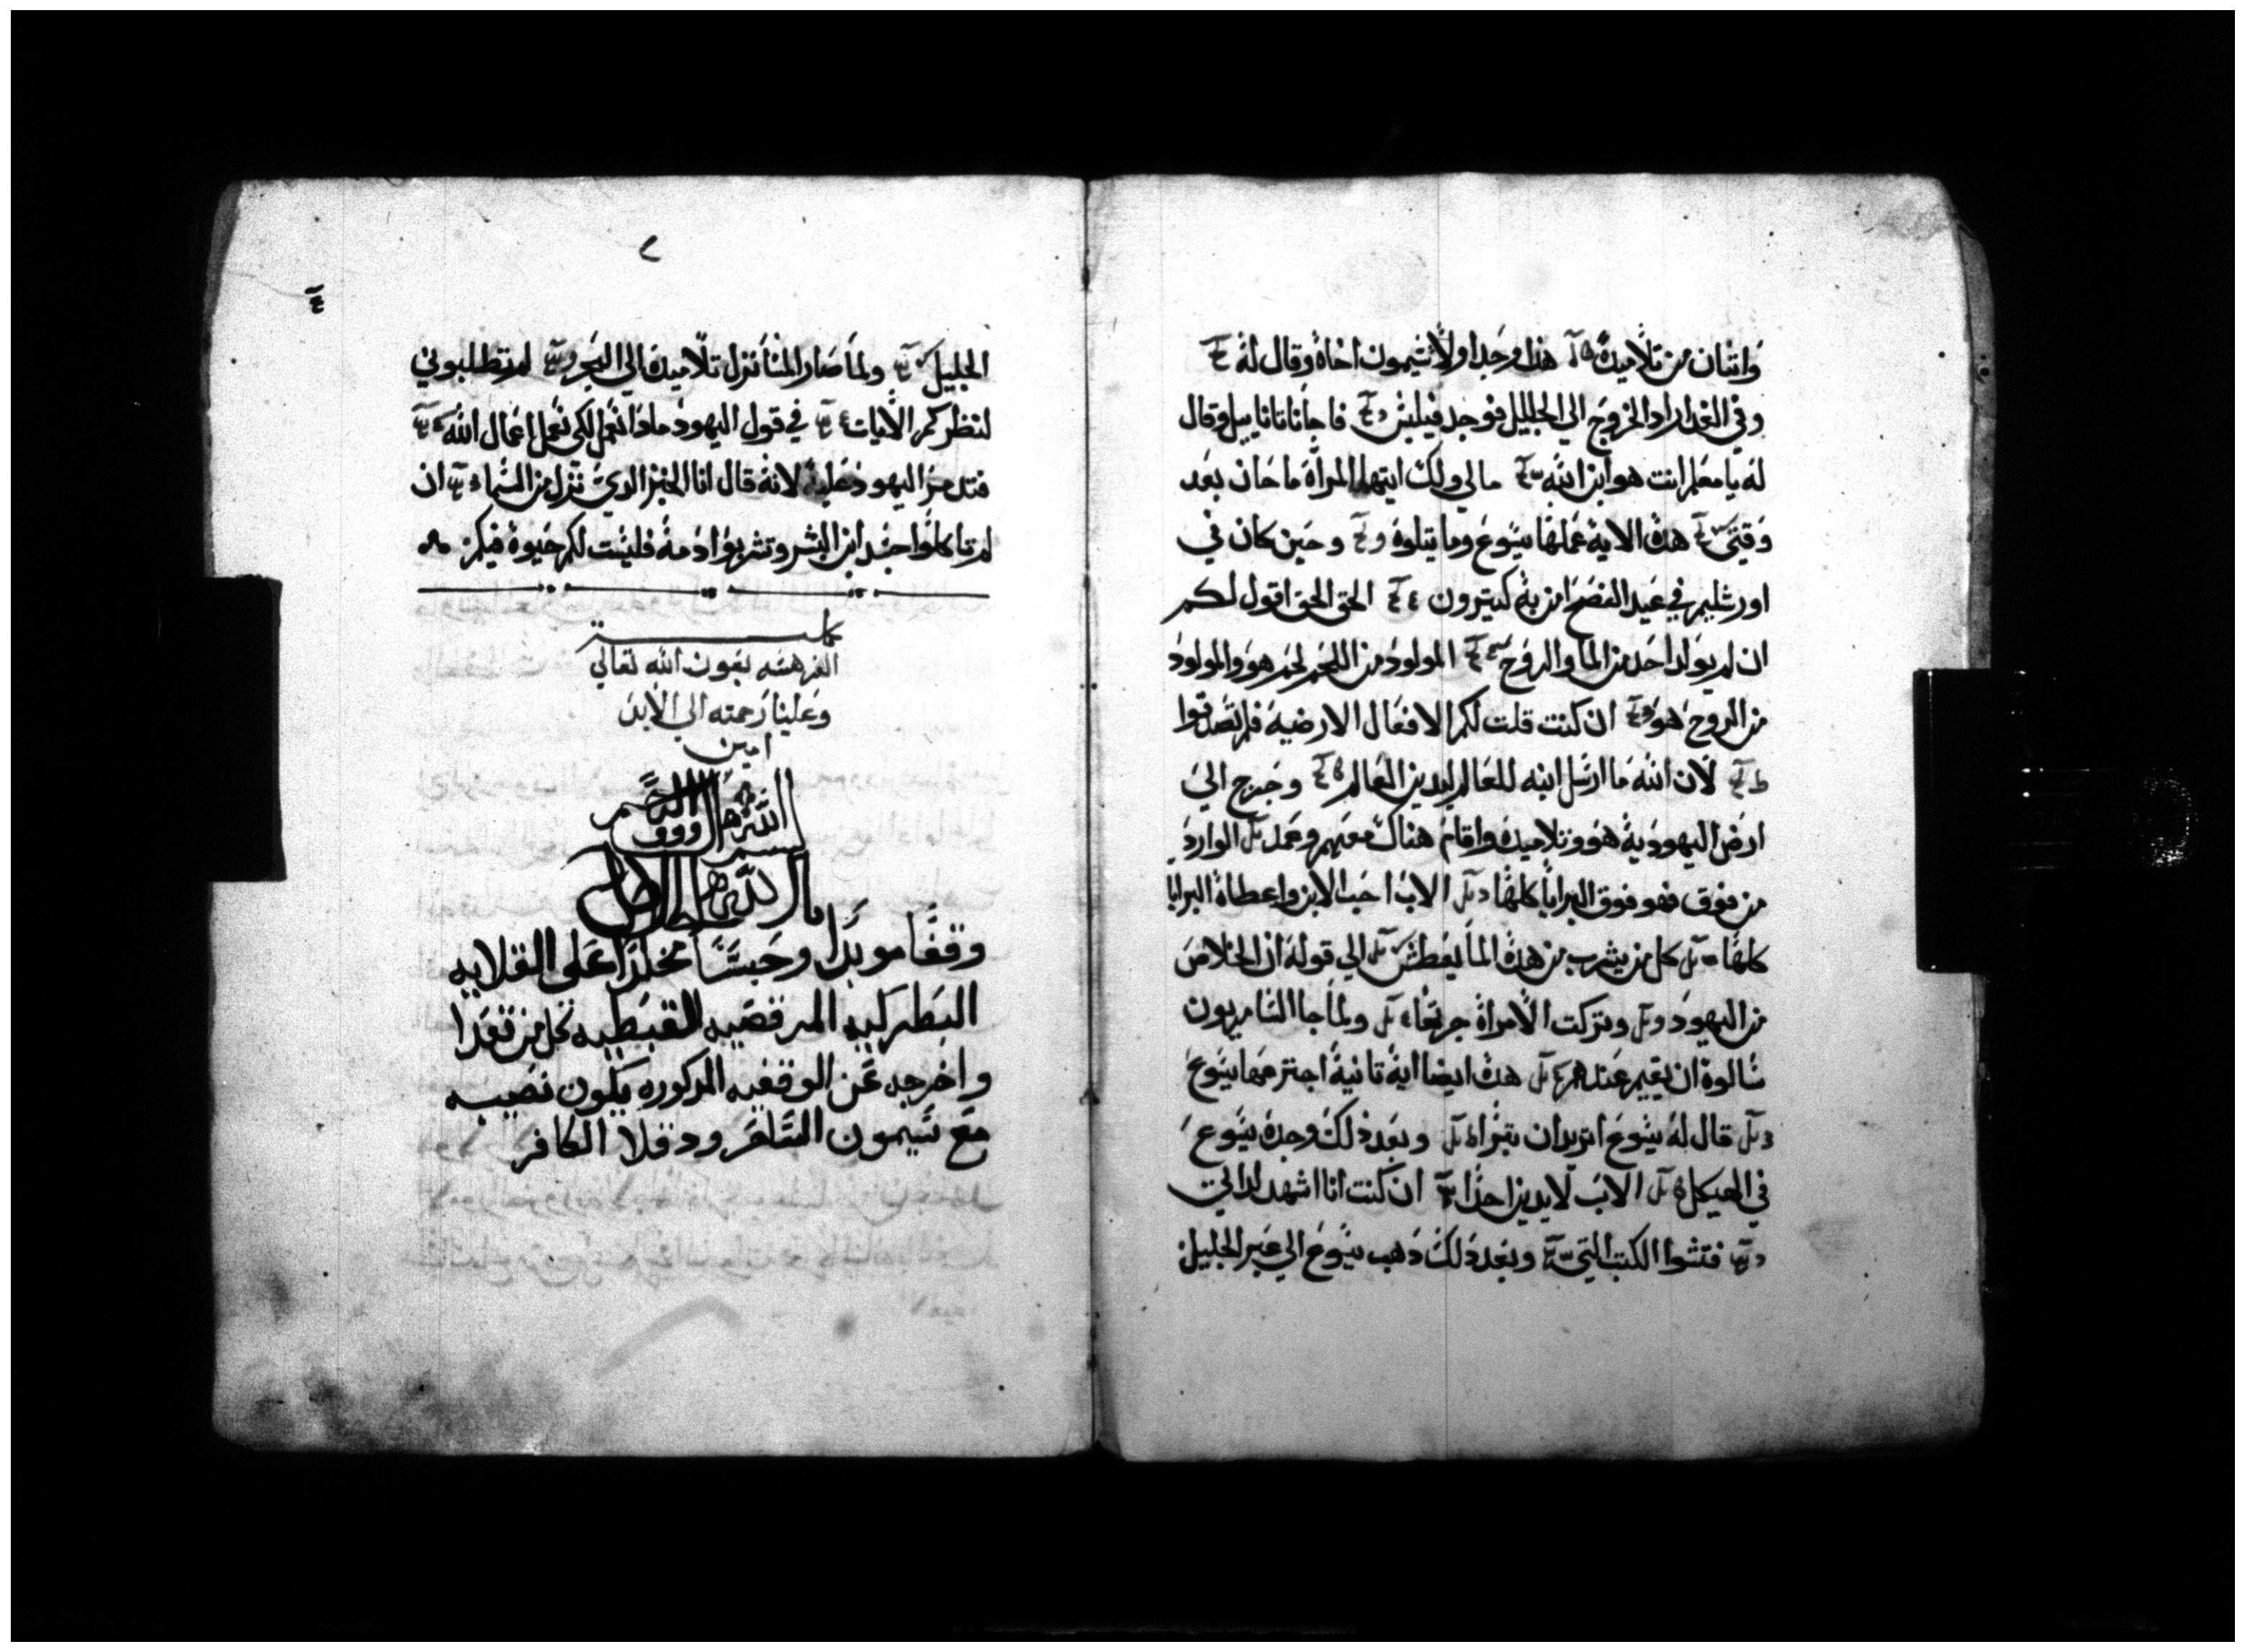 واثنان من تلاميذه هذا وجد اولا شيمون اخاه وقال له
وفي الغد اراد الخروج الي الجليل فوجد فيلبس فاجا ناتانابيل وقال
له يا معلم انت هو ابن الله مالي ولك ايتها المراة ما حان بعد
وقتي هذه الاية عملها يسوع وما يتلوه وحين كان في
اورشليم في عيد الفصح امن به كتيرون الحق الحق اقول لكم
ان لم يولد احد من الما والروح المولود من اللحم لحم هو والمولود
من الروح هو ان كنت قلت لكم الافعال الارضية فلم تصدقوا
لان الله ما ارسل ابنه للعالم ليدين العالم وخرج الي
ارض اليهودية هو وتلاميذه واقام هناك معهم وعمد الوارد
من فوق فهو فوق البرايا كلها الاب احب الابن واعطاه البرايا
كلها كل من يشرب من هذه الما يعطش الي قوله ان الخلاص
من اليهود وتركت الامراة جرتها ولما جا السامريون
سالوه ان يقيم عندهم هذه ايضا اية تانية اجترمها يسوع
قال له يسوع اتريد ان تبرا وبعد ذلك وجده يسوع
في الهيكل الاب لا يدين احدا ان كنت انا اشهد لداتي
فتشوا الكتب التي وبعد ذلك ذهب يسوع الي عبر الجليل
الجليل ولما صار المسا نزل تلاميذه الي البحر لم تطلبوني
لنظركم الايات في قول اليهود مادا نعمل لكي نعمل اعمال الله
فتدمر اليهود عليه لانه قال انا الخبز الدي نزل من السما ان
لم تاكلوا جسد ابن البشر وتشربوا دمه فليست لكم حيوة فيكم
كملت
الفرهسه بعون الله تعالي
وعلينا رحمته الي الابد
امين
بسم الله الرووف الرحيم
وقفا موبدا وحبسا مخلدا علي القلايه
البطركيه المرقصيه القبطيه كل من تعدا
واخرجه عن الوقفيه المدكوره يكون نصيبه
مع سيمون الساحر ودقلا الكافر